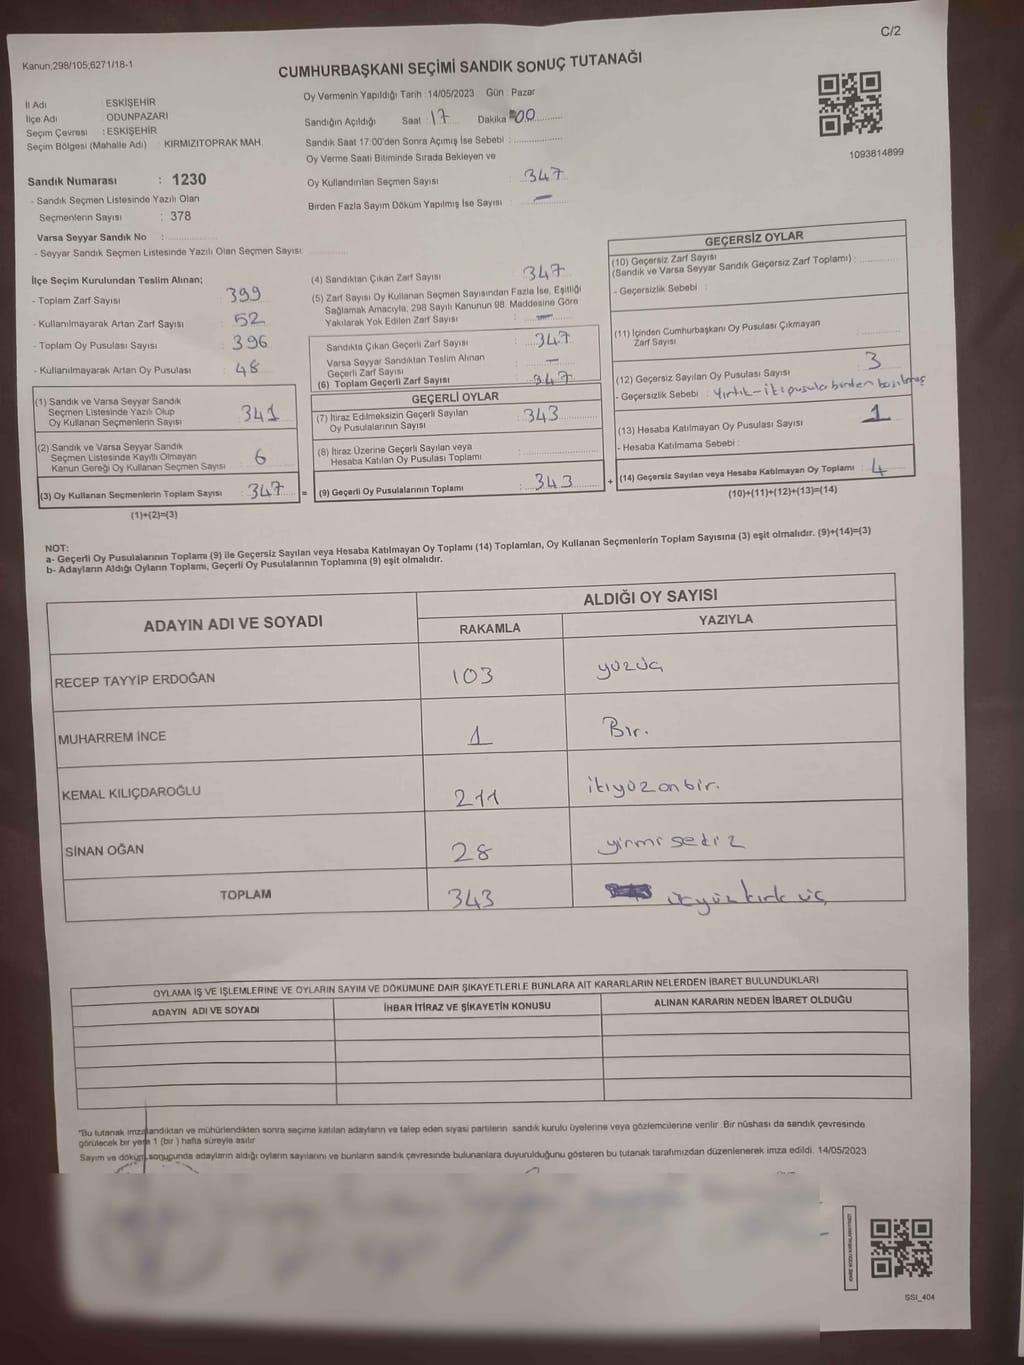 C/2
Kanun;298/105;6271/18-1
CUMHURBAŞKANI SEÇİMİ SANDIK SONUÇ TUTANAĞI
İl Adı : ESKİŞEHİR
İlçe Adı : ODUNPAZARI
Seçim Çevresi : ESKİŞEHİR
Seçim Bölgesi (Mahalle Adı) : KIRMIZITOPRAK MAH.
Oy Vermenin Yapıldığı Tarih :14/05/2023 Gün : Pazar
Sandığın Açıldığı Saat 17 Dakika 00
Sandık Saat 17:00'den Sonra Açımış İse Sebebi :
Oy Verme Saati Bitiminde Sırada Bekleyen ve
Oy Kullandırılan Seçmen Sayısı : 347
Birden Fazla Sayım Döküm Yapılmış İse Sayısı : —
1093814899
Sandık Numarası : 1230
- Sandık Seçmen Listesinde Yazılı Olan
Seçmenlerin Sayısı : 378
Varsa Seyyar Sandık No :
- Seyyar Sandık Seçmen Listesinde Yazılı Olan Seçmen Sayısı:
İlçe Seçim Kurulundan Teslim Alınan;
- Toplam Zarf Sayısı : 399
- Kullanılmayarak Artan Zarf Sayısı : 52
- Toplam Oy Pusulası Sayısı : 396
- Kullanılmayarak Artan Oy Pusulası : 48
(1) Sandık ve Varsa Seyyar Sandık
Seçmen Listesinde Yazılı Olup
Oy Kullanan Seçmenlerin Sayısı : 341
(2) Sandık ve Varsa Seyyar Sandık
Seçmen Listesinde Kayıtlı Olmayan
Kanun Gereği Oy Kullanan Seçmen Sayısı : 6
(3) Oy Kullanan Seçmenlerin Toplam Sayısı : 347 =
(1)+(2)=(3)
(4) Sandıktan Çıkan Zarf Sayısı : 347
(5) Zarf Sayısı Oy Kullanan Seçmen Sayısından Fazla İse, Eşitliği
Sağlamak Amacıyla, 298 Sayılı Kanunun 98. Maddesine Göre
Yakılarak Yok Edilen Zarf Sayısı : —
Sandıkta Çıkan Geçerli Zarf Sayısı : 347
Varsa Seyyar Sandıktan Teslim Alınan
Geçerli Zarf Sayısı : —
(6) Toplam Geçerli Zarf Sayısı : 347
GEÇERLİ OYLAR
(7) İtiraz Edilmeksizin Geçerli Sayılan
Oy Pusulalarının Sayısı : 343
(8) İtiraz Üzerine Geçerli Sayılan veya
Hesaba Katılan Oy Pusulası Toplamı :
(9) Geçerli Oy Pusulalarının Toplamı : 343 +
GEÇERSİZ OYLAR
(10) Geçersiz Zarf Sayısı
(Sandık ve Varsa Seyyar Sandık Geçersiz Zarf Toplamı) :
- Geçersizlik Sebebi :
(11) İçinden Cumhurbaşkanı Oy Pusulası Çıkmayan
Zarf Sayısı :
(12) Geçersiz Sayılan Oy Pusulası Sayısı : 3
- Geçersizlik Sebebi : Yırtık - iki pusula birden basılmış
(13) Hesaba Katılmayan Oy Pusulası Sayısı : 1
- Hesaba Katılmama Sebebi :
(14) Geçersiz Sayılan veya Hesaba Katılmayan Oy Toplamı : 4
(10)+(11)+(12)+(13)=(14)
NOT:
a- Geçerli Oy Pusulalarının Toplamı (9) ile Geçersiz Sayılan veya Hesaba Katılmayan Oy Toplamı (14) Toplamları, Oy Kullanan Seçmenlerin Toplam Sayısına (3) eşit olmalıdır. (9)+(14)=(3)
b- Adayların Aldığı Oyların Toplamı, Geçerli Oy Pusulalarının Toplamına (9) eşit olmalıdır.
ADAYIN ADI VE SOYADI
ALDIĞI OY SAYISI
RAKAMLA YAZIYLA
RECEP TAYYİP ERDOĞAN 103 yüzüç
MUHARREM İNCE 1 Bir.
KEMAL KILIÇDAROĞLU 211 ikiyüzonbir.
SİNAN OĞAN 28 yirmi sekiz
TOPLAM 343 üçyüz kırk üç
OYLAMA İŞ VE İŞLEMLERİNE VE OYLARIN SAYIM VE DÖKÜMÜNE DAİR ŞİKAYETLERLE BUNLARA AİT KARARLARIN NELERDEN İBARET BULUNDUKLARI
ADAYIN ADI VE SOYADI İHBAR İTİRAZ VE ŞİKAYETİN KONUSU ALINAN KARARIN NEDEN İBARET OLDUĞU
"Bu tutanak imzalandıktan ve mühürlendikten sonra seçime katılan adayların ve talep eden siyasi partilerin sandık kurulu üyelerine veya gözlemcilerine verilir. Bir nüshası da sandık çevresinde
görülecek bir yere 1 (bir ) hafta süreyle asılır
Sayım ve döküm sonucunda adayların aldığı oyların sayılarını ve bunların sandık çevresinde bulunanlara duyurulduğunu gösteren bu tutanak tarafımızdan düzenlenerek imza edildi. 14/05/2023
SSİ_404